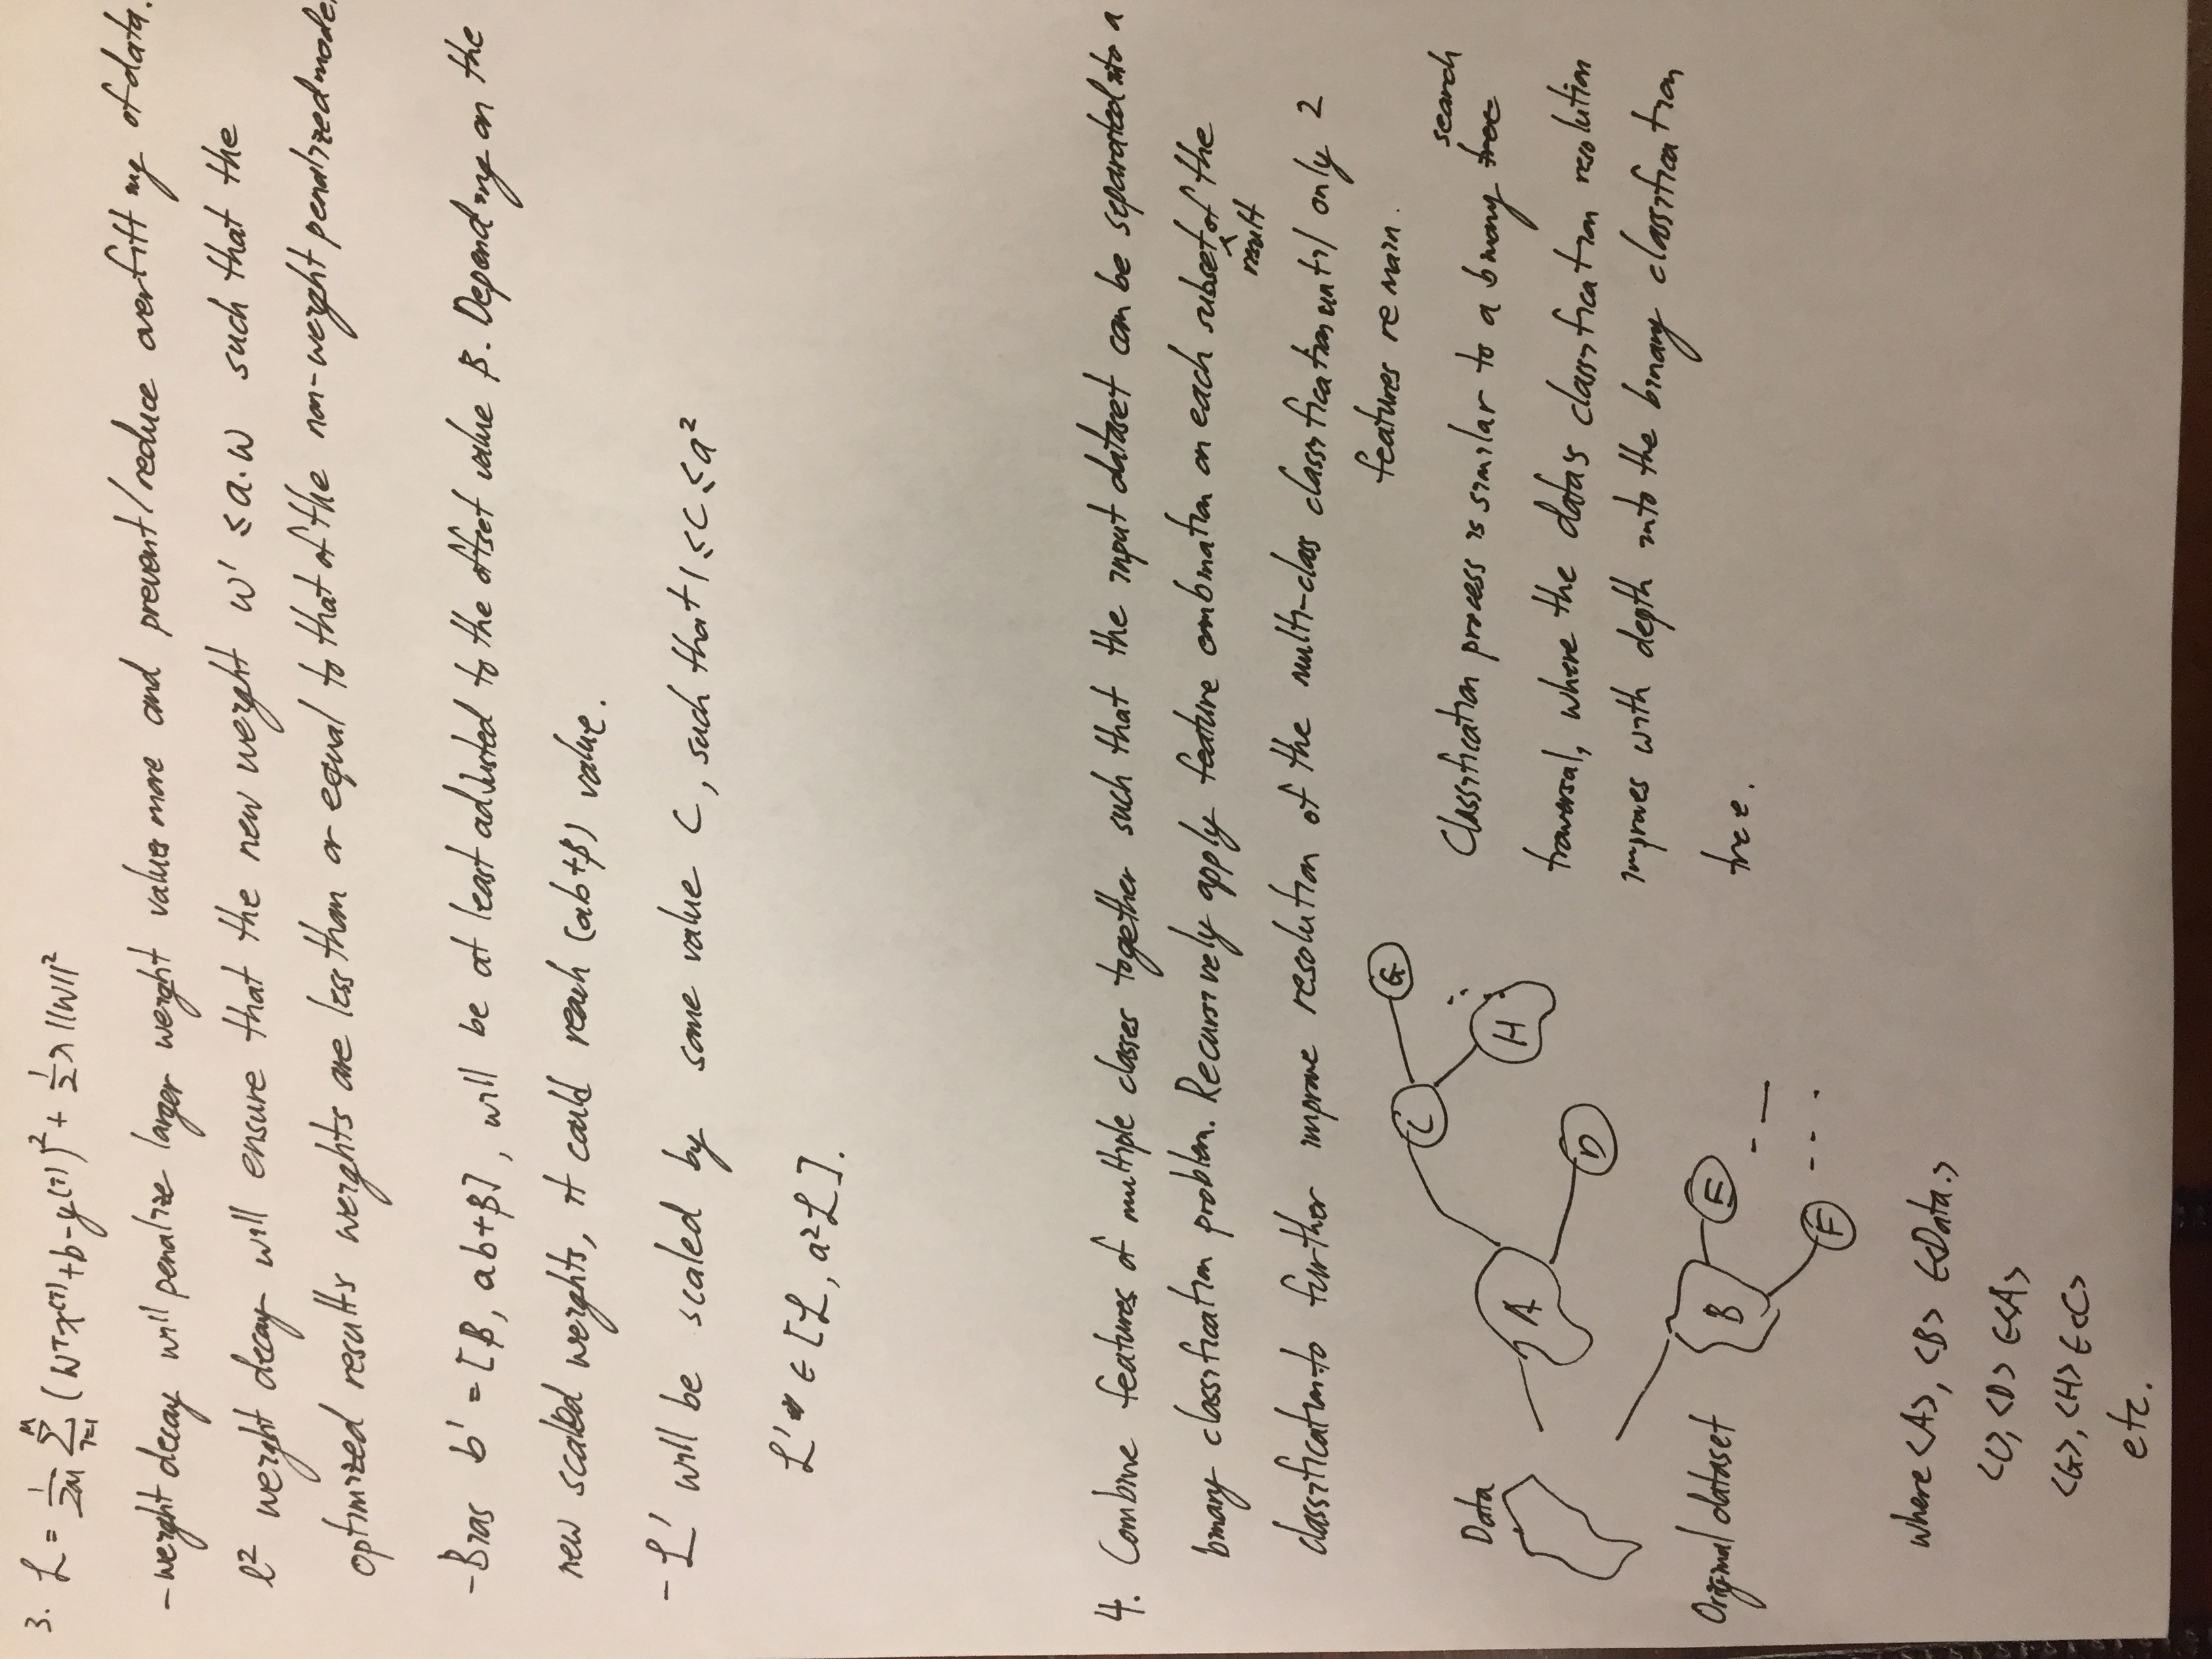 3. ℒ = 1/2M Σ_{i=1}^{M} (W^T x^{(i)} + b - y^{(i)})² + 1/2 λ ||W||²
- weight decay will penalize larger weight values more and prevent/reduce overfitting of data.
ℓ² weight decay will ensure that the new weight w' ≤ a·w such that the
optimized results weights are less than or equal to that of the non-weight penalized model
- Bias b' = [β, ab+β], will be at least adjusted to the offset value β. Depending on the
new scaled weights, it could reach (ab+β) value.
- ℒ' will be scaled by some value C, such that 1 ≤ C ≤ a²
ℒ' ∈ [ℒ, a²ℒ].
4. Combine features of multiple classes together such that the input dataset can be separated into a
binary classification problem. Recursively apply feature combination on each subset of the
result
classification to further improve resolution of the multi-class classification until only 2
features remain.
Data
A
B
C
D
E
F
G
H
Original dataset
search
Classification process is similar to a binary tree
traversal, where the data's classification resolution
improves with depth into the binary classification
tree.
where <A>, <B> ∈ <Data.>
<C>, <D> ∈ <A>
<G>, <H> ∈ <C>
etc.